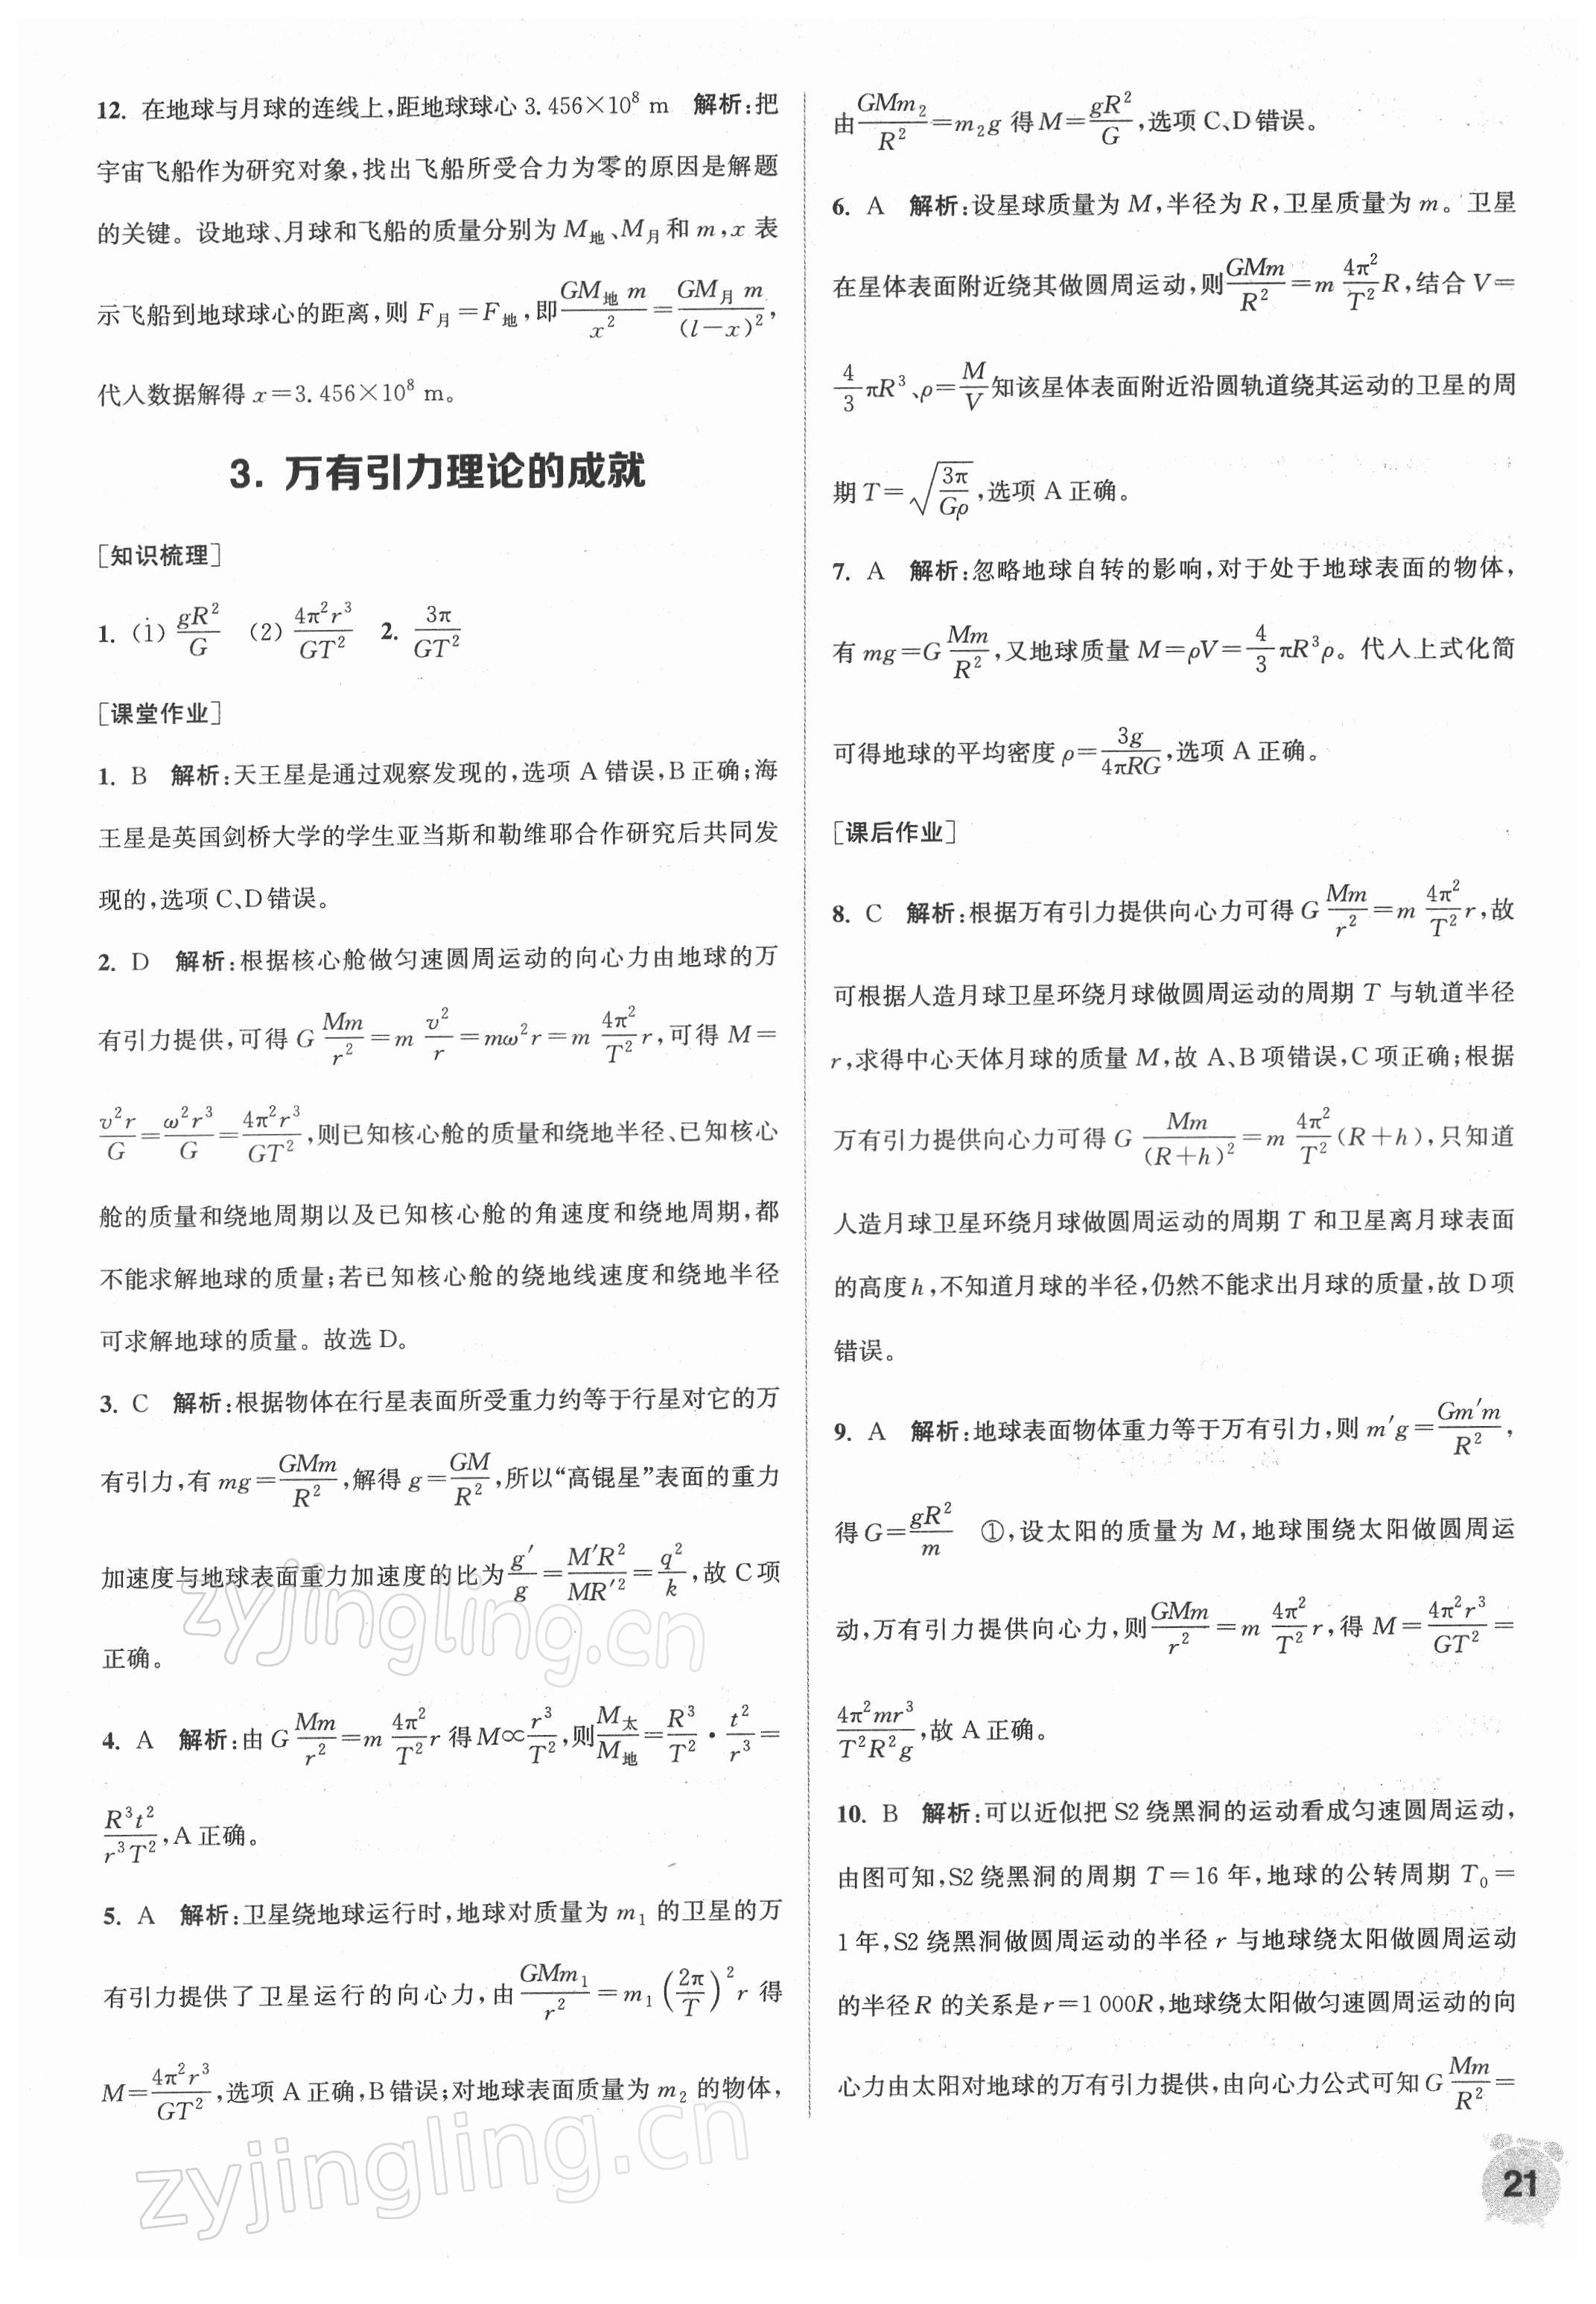 12. 在地球与月球的连线上,距地球球心 3.456×10⁸ m 解析:把
宇宙飞船作为研究对象,找出飞船所受合力为零的原因是解题
的关键。设地球、月球和飞船的质量分别为 M地、M月和 m,x 表
示飞船到地球球心的距离,则 F月=F地,即 GM地 m/x²=GM月 m/(l−x)²,
代入数据解得 x=3.456×10⁸ m。
3. 万有引力理论的成就
[知识梳理]
1. (1) gR²/G (2) 4π²r³/GT² 2. 3π/GT²
[课堂作业]
1. B 解析:天王星是通过观察发现的,选项 A 错误,B 正确;海
王星是英国剑桥大学的学生亚当斯和勒维耶合作研究后共同发
现的,选项 C、D 错误。
2. D 解析:根据核心舱做匀速圆周运动的向心力由地球的万
有引力提供,可得 G Mm/r²=m v²/r=mω²r=m 4π²/T² r,可得 M=
v²r/G=ω²r³/G=4π²r³/GT²,则已知核心舱的质量和绕地半径、已知核心
舱的质量和绕地周期以及已知核心舱的角速度和绕地周期,都
不能求解地球的质量;若已知核心舱的绕地线速度和绕地半径
可求解地球的质量。故选 D。
3. C 解析:根据物体在行星表面所受重力约等于行星对它的万
有引力,有 mg=GMm/R²,解得 g=GM/R²,所以“高锟星”表面的重力
加速度与地球表面重力加速度的比为 g′/g=M′R²/MR′²=q²/k,故 C 项
正确。
4. A 解析:由 G Mm/r²=m 4π²/T² r 得 M∝r³/T²,则 M太/M地=R³/T²·t²/r³=
R³t²/r³T²,A 正确。
5. A 解析:卫星绕地球运行时,地球对质量为 m₁ 的卫星的万
有引力提供了卫星运行的向心力,由 GMm₁/r²=m₁(2π/T)²r 得
M=4π²r³/GT²,选项 A 正确,B 错误;对地球表面质量为 m₂ 的物体,
由 GMm₂/R²=m₂g 得 M=gR²/G,选项 C、D 错误。
6. A 解析:设星球质量为 M,半径为 R,卫星质量为 m。卫星
在星体表面附近绕其做圆周运动,则 GMm/R²=m 4π²/T² R,结合 V=
4/3 πR³、ρ=M/V 知该星体表面附近沿圆轨道绕其运动的卫星的周
期 T=√(3π/Gρ),选项 A 正确。
7. A 解析:忽略地球自转的影响,对于处于地球表面的物体,
有 mg=G Mm/R²,又地球质量 M=ρV=4/3 πR³ρ。代入上式化简
可得地球的平均密度 ρ=3g/4πRG,选项 A 正确。
[课后作业]
8. C 解析:根据万有引力提供向心力可得 G Mm/r²=m 4π²/T² r,故
可根据人造月球卫星环绕月球做圆周运动的周期 T 与轨道半径
r,求得中心天体月球的质量 M,故 A、B 项错误,C 项正确;根据
万有引力提供向心力可得 G Mm/(R+h)²=m 4π²/T² (R+h),只知道
人造月球卫星环绕月球做圆周运动的周期 T 和卫星离月球表面
的高度 h,不知道月球的半径,仍然不能求出月球的质量,故 D 项
错误。
9. A 解析:地球表面物体重力等于万有引力,则 m′g=Gm′m/R²,
得 G=gR²/m ①,设太阳的质量为 M,地球围绕太阳做圆周运
动,万有引力提供向心力,则 GMm/r²=m 4π²/T² r,得 M=4π²r³/GT²=
4π²mr³/T²R²g,故 A 正确。
10. B 解析:可以近似把 S2 绕黑洞的运动看成匀速圆周运动,
由图可知,S2 绕黑洞的周期 T=16 年,地球的公转周期 T₀=
1 年,S2 绕黑洞做圆周运动的半径 r 与地球绕太阳做圆周运动
的半径 R 的关系是 r=1 000R,地球绕太阳做匀速圆周运动的向
心力由太阳对地球的万有引力提供,由向心力公式可知 G Mm/R²=
21
zyjingling.cn
zyjingling.cn